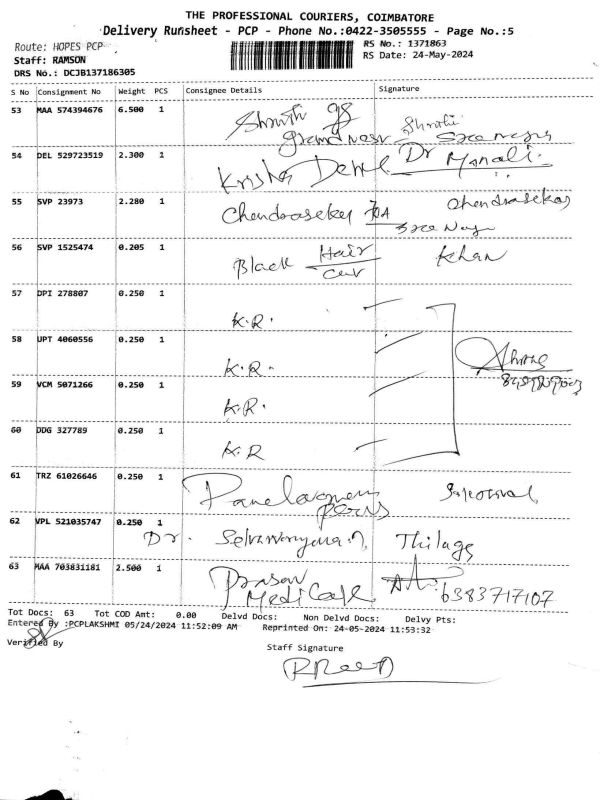 THE PROFESSIONAL COURIERS, COIMBATORE
Delivery Runsheet - PCP - Phone No.:0422-3505555 - Page No.:5
Route: HOPES PCP RS No.: 1371863
Staff: RAMSON RS Date: 24-May-2024
DRS No.: DCJB137186305
S No Consignment No Weight PCS Consignee Details Signature
53 MAA 574394676 6.500 1
54 DEL 529723519 2.300 1 Dr Monali
55 SVP 23973 2.280 1 Chendrasekar Chendrasekar
56 SVP 1525474 0.205 1 Black Hair Cut Khan
57 DPI 278807 0.250 1 K.R.
58 UPT 4060556 0.250 1 K.R.
59 VCM 5071266 0.250 1 K.R.
60 DDG 327789 0.250 1 K.R
61 TRZ 61026646 0.250 1
62 VPL 521035747 0.250 1 Dr. Thilaga
63 MAA 703831181 2.500 1 Medicare 6383717107
Tot Docs: 63 Tot COD Amt: 0.00 Delvd Docs: Non Delvd Docs: Delvy Pts:
Entered By :PCPLAKSHMI 05/24/2024 11:52:09 AM Reprinted On: 24-05-2024 11:53:32
Verified By
Staff Signature